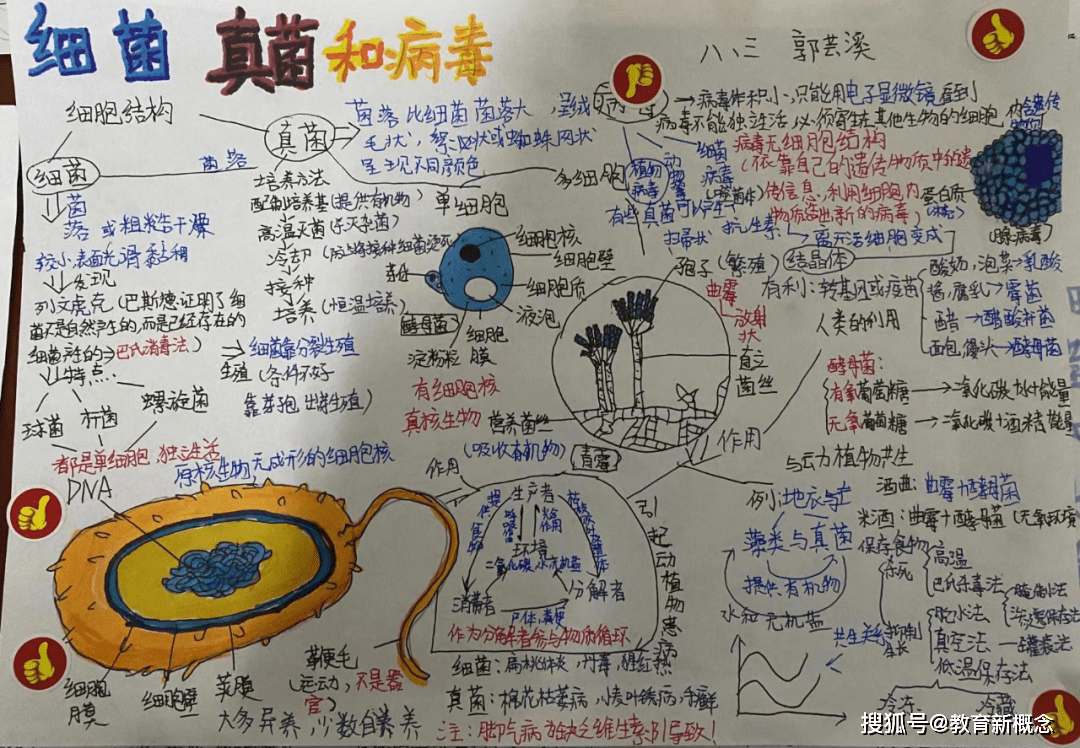 细菌 真菌和病毒
八、三 郭芸溪
细胞结构
细菌
菌落
菌
落 或粗糙干燥
较小,表面光滑黏稠
发现
列文虎克(巴斯德:证明了细
菌不是自然产生的,而是已经存在的
巴氏消毒法)
特点:
球菌 杆菌 螺旋菌
都是单细胞 独立生活
细菌靠分裂生殖
生殖(条件不好
靠芽孢
原核生物,无成形的细胞核
DNA
细胞膜
细胞壁
荚膜
鞭毛
(运动,不是器官)
大多异养,少数自养
真菌
菌落比细菌菌落大,呈绒
毛状,絮状或蜘蛛网状
呈现不同颜色
培养方法
配制培养基(提供有机物)
高温灭菌
冷却
接种
培养(恒温培养)
单细胞
多细胞
细胞核
细胞壁
细胞质
液泡
细胞膜
淀粉粒
酵母菌
有细胞核
真核生物
营养菌丝
(吸收有机物)
青霉
孢子(繁殖)
扫帚状
曲霉
放射状
直立菌丝
有些真菌可以产生
抗生素
病毒体积小,只能用电子显微镜看到
病毒不能独立生活,必须寄生在其他生物的细胞内
植物病毒
动物病毒
细菌病毒
(噬菌体)
病毒无细胞结构
(依靠自己的遗传物质中的遗
传信息,利用细胞内
物质造出新的病毒)
离开活细胞变成
结晶体
有利:转基因或疫苗
蛋白质
(腺病毒)
人类的利用
酸奶,泡菜→乳酸
酱,腐乳→霉菌
醋→醋酸杆菌
面包,馒头→酵母菌
酵母菌:
有氧葡萄糖→二氧化碳+水+能量
无氧葡萄糖→二氧化碳+酒精+能量
酒曲:曲霉+酵母菌
米酒:曲霉+酵母菌(无氧环境)
作用
与动植物共生
例:地衣
藻类与真菌
提供有机物
水和无机盐
共生关系
保存食物
杀死
高温
巴氏杀毒法
抑制生长
脱水法
真空法
低温保存法
腌制法
罐装法
冷冻 冷藏
作用
生产者
环境
二氧化碳 水 无机盐
消费者
分解者
尸体,粪便
作为分解者参与物质循环
引起动植物患病
细菌:扁桃体炎,丹毒,猩红热
真菌:棉花枯萎病,小麦叶锈病,手癣
注:脚气病为缺乏维生素B1导致!
搜狐号@教育新概念